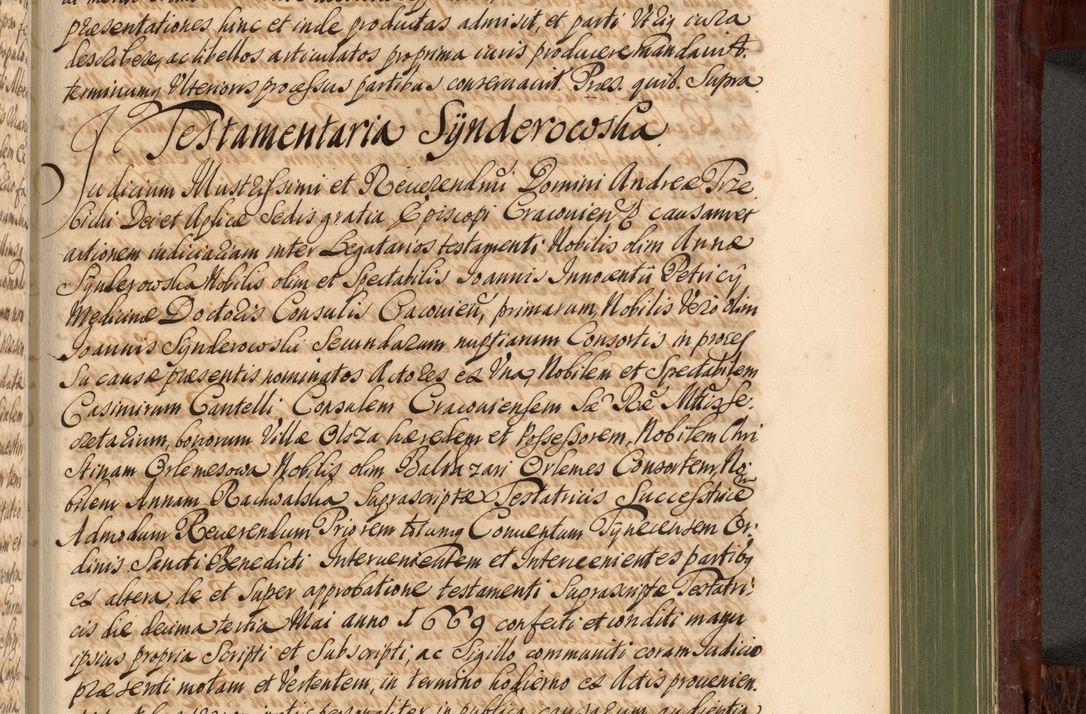 præsentationes hinc et inde productas admisit, et parti Vtriq cura
describere, ac libellos articulatos pro prima iuris producere mandauit.
terminumq Vlterioris processus partibus conseruauit. Præs. quib. Supra.
Testamentaria Sÿnderowska
Judicium Illustrissimi et Reuerendmi Domini Andreæ Trze
bicki Dei et Aplicæ Sedis gratia Episcopi Cracouien causam et
actionem iudiciariam inter Legatarios testamenti Nobilis olim Annæ
Sÿnderowska Nobilis olim et Spectabilis Joannis Innocentij Petricÿ
Medicinæ Doctoris Consulis Cracouien, primarum, Nobilis Vero olim
Joannis Sÿnderowski Secundarum nuptiarum Consortis in proces
su causæ præsentis nominatos Actores ex Vna, Nobilem et Spectabilem
Casimirum Cantelli Consulem Cracouiensem Sæ Ræ Mttis Se-
cretarium, bonorum Villæ Olsza hæredem et Possessorem, Nobilem Chri
stinam Orlemesowa Nobilis olim Baltazari Orlemes Consortem, No-
bilem Annam Rachwalska Suprascriptæ Testatricis Successtricem
Admodum Reuerendum Priorem totumq Conuentum Tynecensem Or-
dinis Sancti Benedicti Interuenientem et Interuenientes partibq
ex altera, de et Super approbatione testamenti Suprascriptæ Testatri-
cis die decima tertia Mai anno 1669 confecti et conditi manu
ipsius propria Scripti et Subscripti, ac Sigillo communiti coram Judicio
præsenti motam et Vertentem, in termino hodierno ex Actis prouenien.